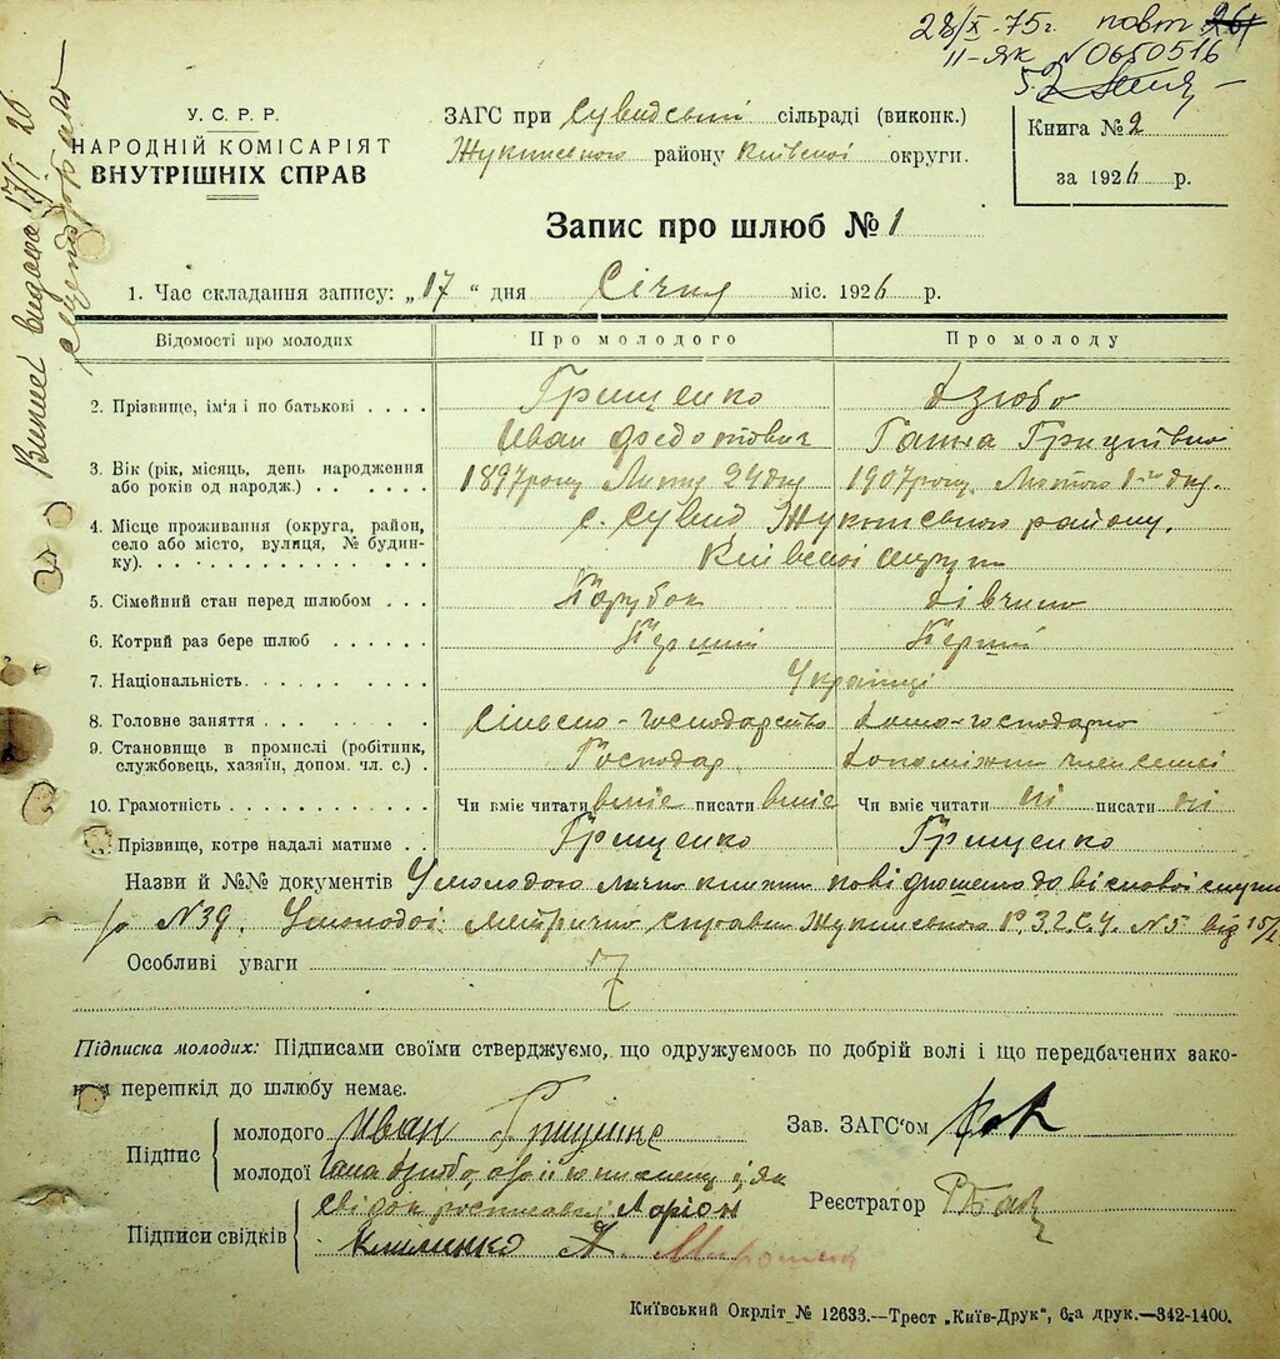 28/X-75г. повт 26
II-ЯК №0650516
У. С. Р. Р.
НАРОДНІЙ КОМІСАРІЯТ
ВНУТРІШНІХ СПРАВ
ЗАГС при Сувидській сільраді (виконк.)
Жукинського району Київської округи.
Книга № 2
за 1926 р.
Випис видана 17/I 26
Запис про шлюб № 1
1. Час складання запису: „17“ дня Січня міс. 1926 р.
Відомості про молодих Про молодого Про молоду
2. Прізвище, ім'я і по батькові . . . . Грищенко Дзюба
Иван Федотович Ганна Грицківна
3. Вік (рік, місяць, день народження
або років од народж.) . . . . . . . 1897року Лютий 24 дня 1907року Лютого 1-го дня.
4. Місце проживання (округа, район,
село або місто, вулиця, № будин-
ку). . . . . . . . . . . . . . . с. Сувид, Жукинського району,
Київської округи
5. Сімейний стан перед шлюбом . . . Парубок Дівчина
6. Котрий раз бере шлюб . . . . . . Перший Перший
7. Національність. . . . . . . . . . Українці
8. Головне заняття . . . . . . . . . Сільсько-господарство Дома-господарка
9. Становище в промислі (робітник,
службовець, хазяїн, допом. чл. с.) . Господар Допоміжний член семьї
10. Грамотність . . . . . . . . . . . Чи вміє читати вміє писати вміє Чи вміє читати ні писати ні
Прізвище, котре надалі матиме . . Грищенко Грищенко
Назви й №№ документів У молодого лична книжка
№39. У молодої: Метрична справка Жукинського №5 від 15/I
Особливі уваги
Підписка молодих: Підписами своїми стверджуємо, що одружуємось по добрій волі і що передбачених зако-
ном перешкід до шлюбу немає.
Підпис
молодого Иван Грищенко
молодої Ганна Дзюба, а за її неписьменну і як
свідок росписався Ларіон
Підписи свідків
Клименко А. Мирошник
Зав. ЗАГС'ом
Реєстратор
Київський Окрліт № 12633.—Трест „Київ-Друк“, 6-а друк.—342-1400.